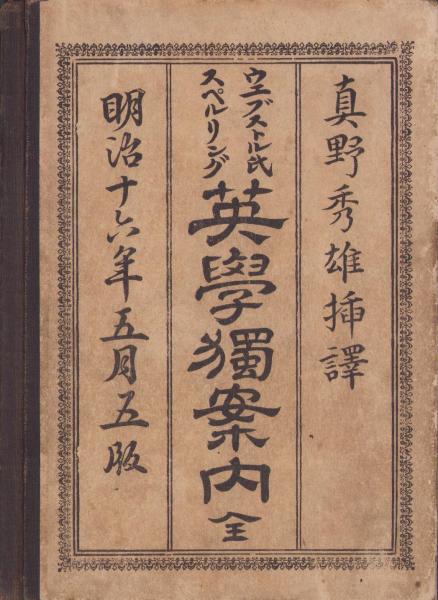 真野秀雄插譯
ウエブストル氏
スペルリング
英學獨案内 全
明治十六年五月五版